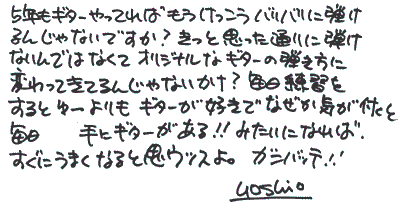 5年もギターやってればもうけっこうバリバリに弾け
るんじゃないですか?きっと思った通りに弾け
ないんではなくてオリジナルなギターの弾き方に
変わってきてるんじゃないかけ?毎日練習を
するとゆーよりもギターが好きでなぜか気が付くと
毎日 手にギターがある!!みたいになれば、
すぐにうまくなると思うッスよ。ガンバッテ!!
yoshio